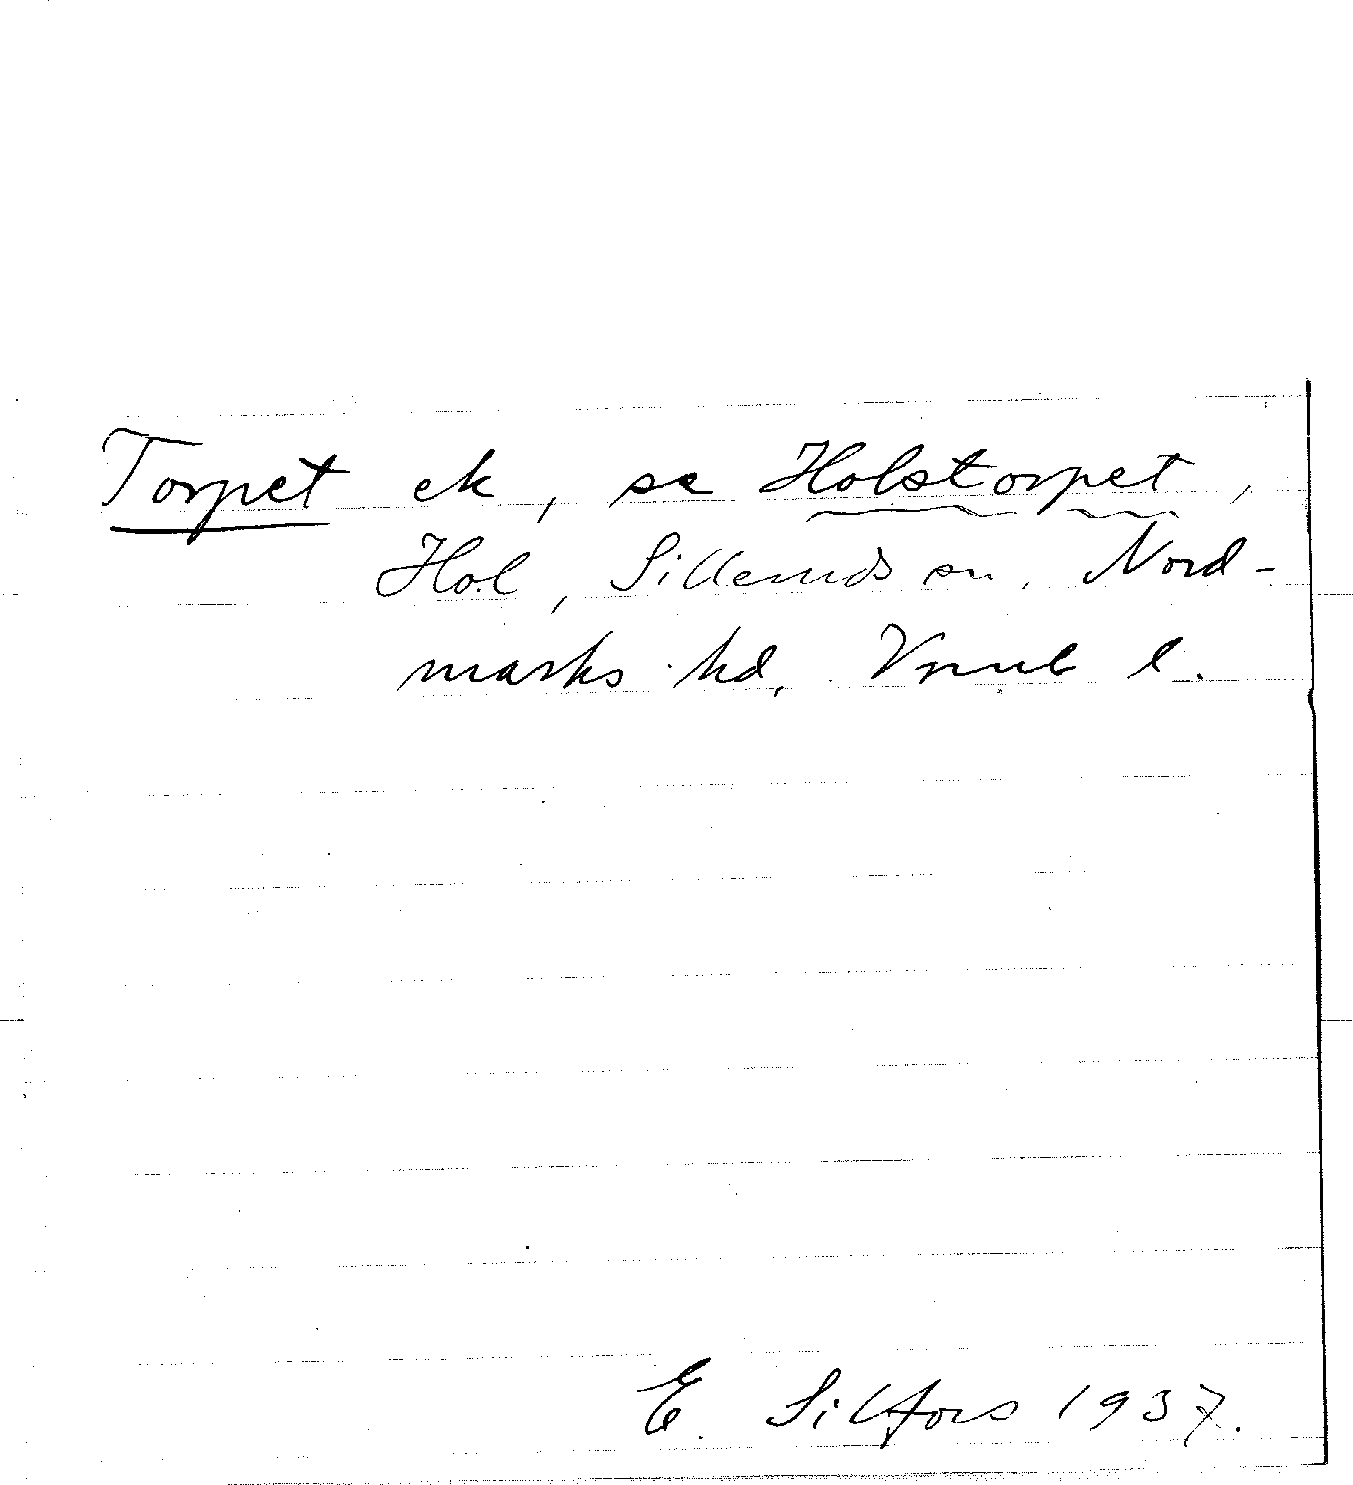 Torpet ek, se Holstorpet,
Hol, Silleruds sn, Nord-
marks hd, Vrml l.
E. Silfors 1937.